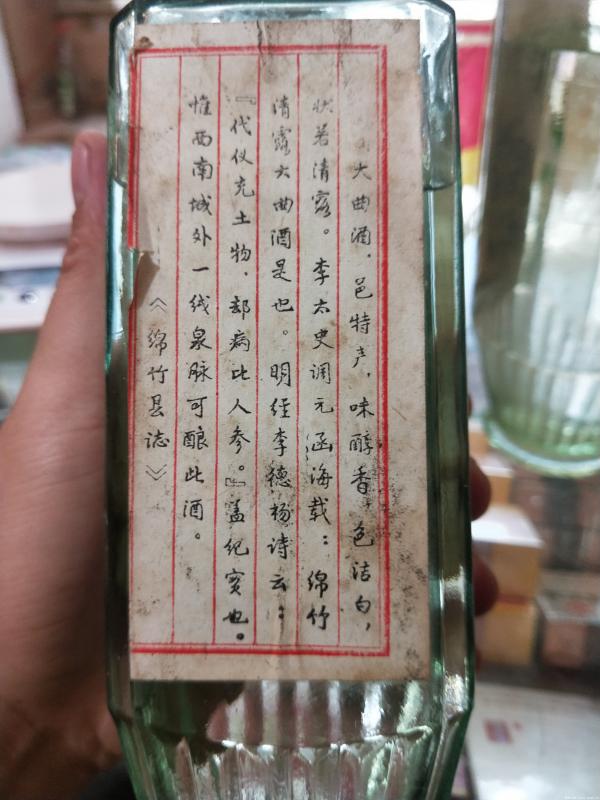 大曲酒，邑特产，味醇香，色洁白，
状若清露。李太史调元涵海载：绵竹
清露大曲酒是也。明经李德杨诗云：
『代仪充土物，却病比人参。』盖纪实也。
惟西南城外一线泉脉可酿此酒。
《绵竹县志》